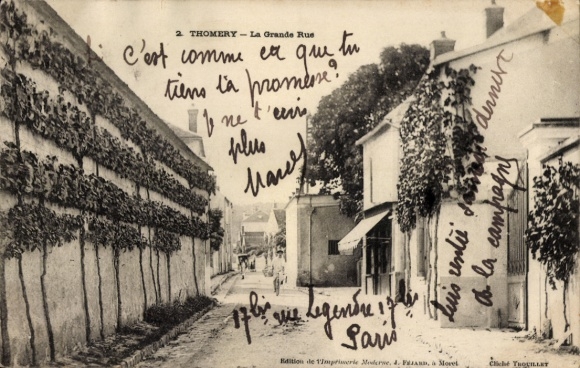 2. THOMERY – La Grande Rue
c'est comme ca que tu
tiens ta promesse?
Je ne t'ecris
plus
Marcel
suis rentré
à la campagne
17bis rue Legendre 17bis
Paris
Edition de l'Imprimerie Moderne, A. FÉJARD, à Moret
Cliché TROUILLET